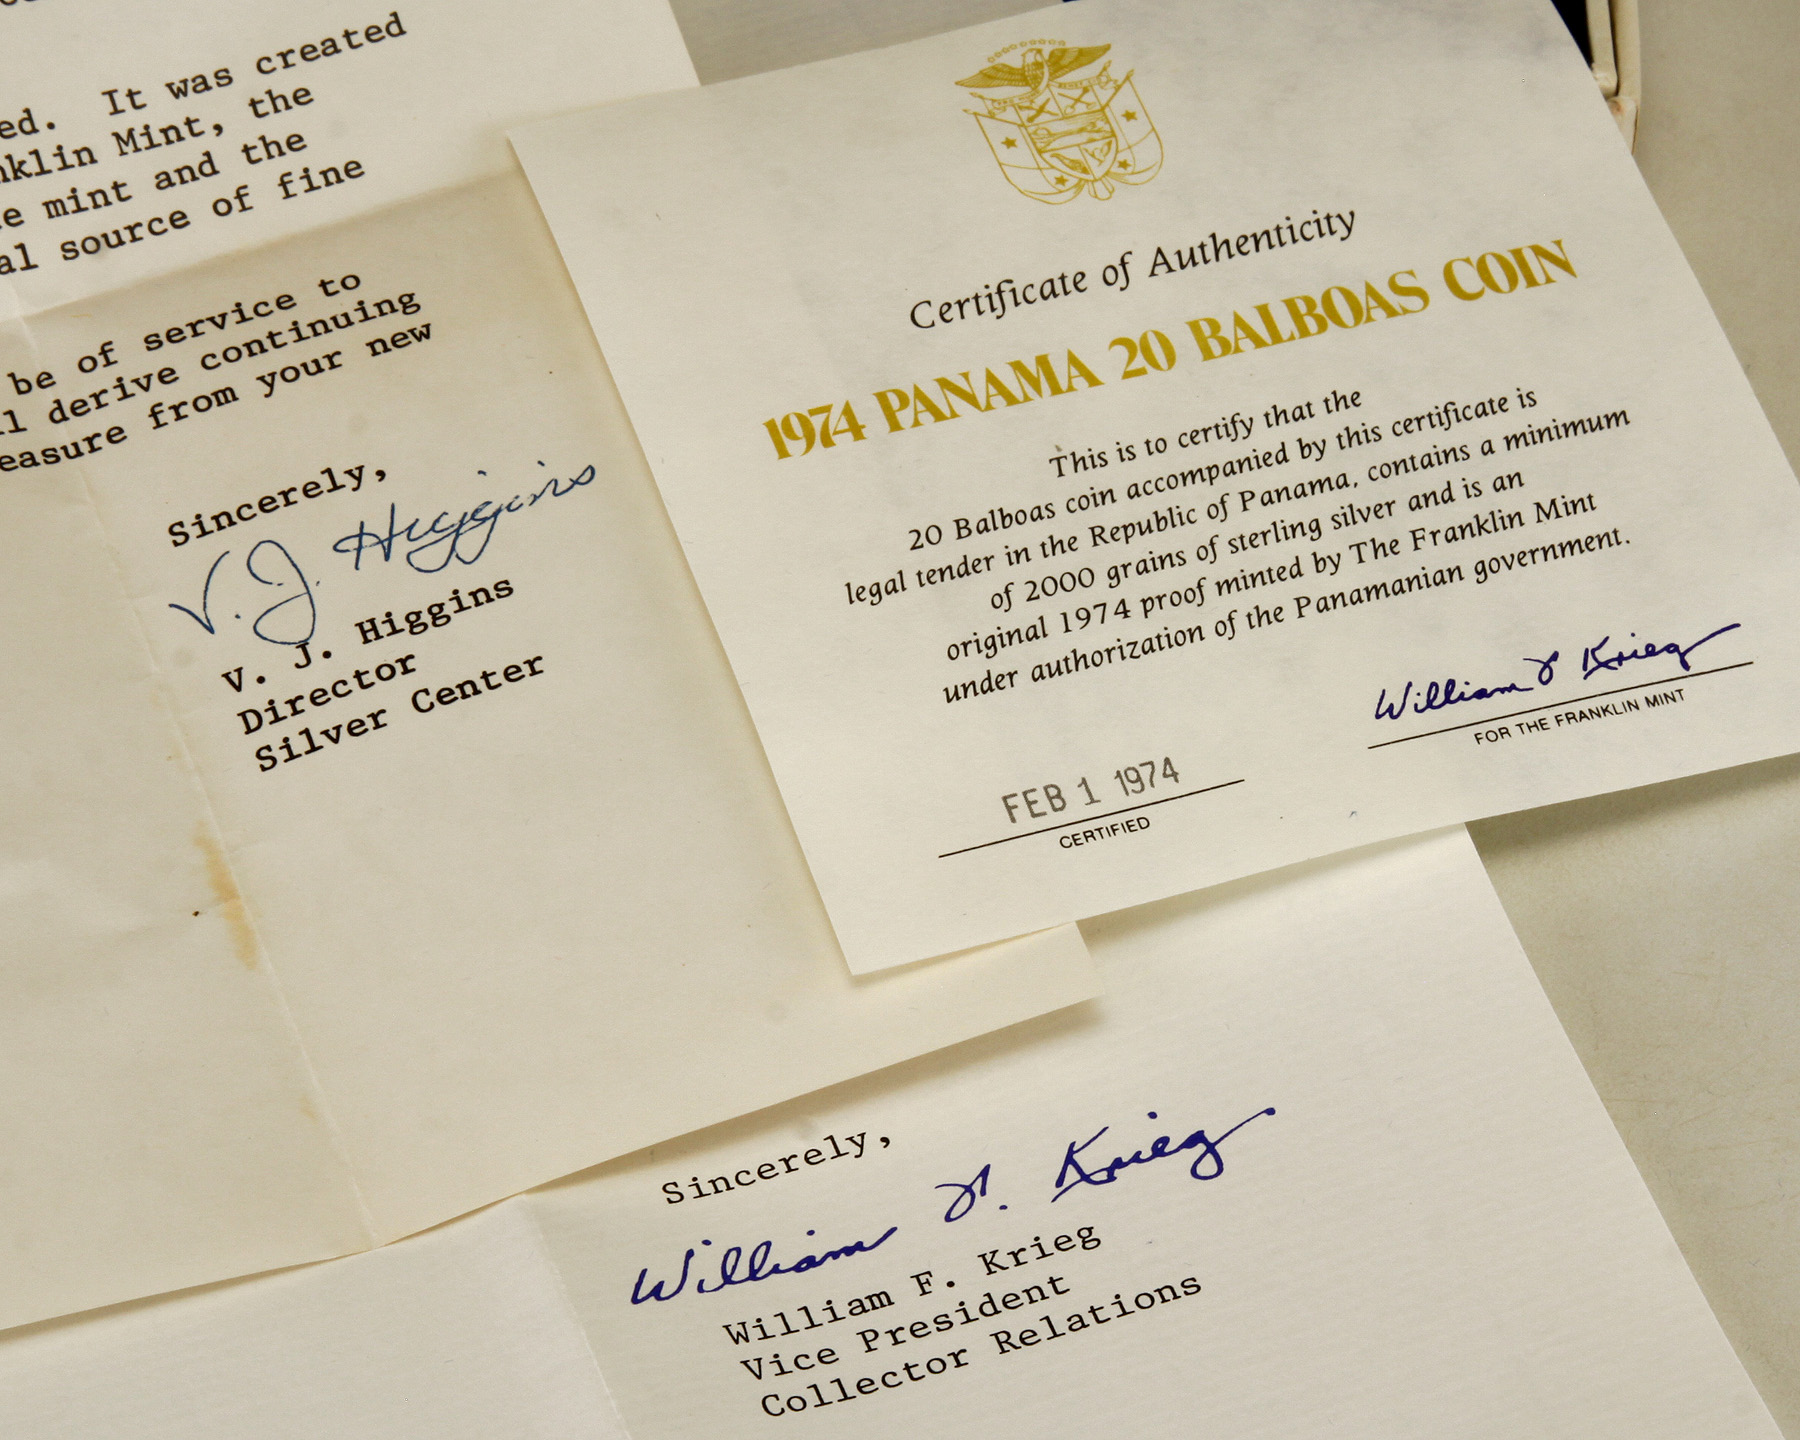 ed. It was created
nklin Mint, the
e mint and the
al source of fine
be of service to
ll derive continuing
easure from your new
Sincerely,
V. J. Higgins
V. J. Higgins
Director
Silver Center
Certificate of Authenticity
1974 PANAMA 20 BALBOAS COIN
This is to certify that the
20 Balboas coin accompanied by this certificate is
legal tender in the Republic of Panama, contains a minimum
of 2000 grains of sterling silver and is an
original 1974 proof minted by The Franklin Mint
under authorization of the Panamanian government.
William F Krieg
FOR THE FRANKLIN MINT
FEB 1 1974
CERTIFIED
Sincerely,
William F. Krieg
William F. Krieg
Vice President
Collector Relations